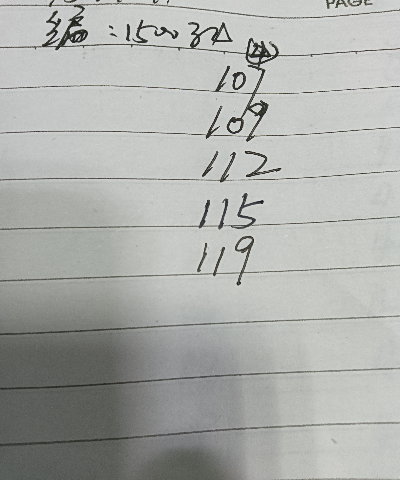 PAGE
编:1500
107
109
112
115
119